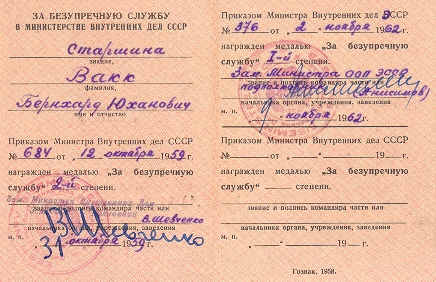 ЗА БЕЗУПРЕЧНУЮ СЛУЖБУ
В МИНИСТЕРСТВЕ ВНУТРЕННИХ ДЕЛ СССР
Старшина
звание,
Вакк
фамилия,
Бернхард Юханович
имя и отчество
Приказом Министра Внутренних дел СССР
№ 684 от „ 12 октября 1959 г.
награжден медалью „За безупречную
службу" 2-й степени.
Зам. Министра Внутренних Дел
В. Шевченко
звание и подпись командира части или
начальника органа, учреждения, заведения
м. п.
31 октября 1959 г.
Приказом Министра Внутренних дел ЭССР
№ 376 от „ 2 " ноября 1962 г.
награжден медалью „За безупречную
службу" I-й степени.
Зам. Министра ООП ЭССР
подполковник (Анисимов)
звание и подпись командира части или
начальника органа, учреждения, заведения
м. п. ноября 1962 г.
Приказом Министра Внутренних дел СССР
№ от „ " 19 г.
награжден медалью „За безупречную
службу" степени.
звание и подпись командира части или
начальника органа, учреждения, заведения
м. п. „ " 19 г.
Гознак. 1958.